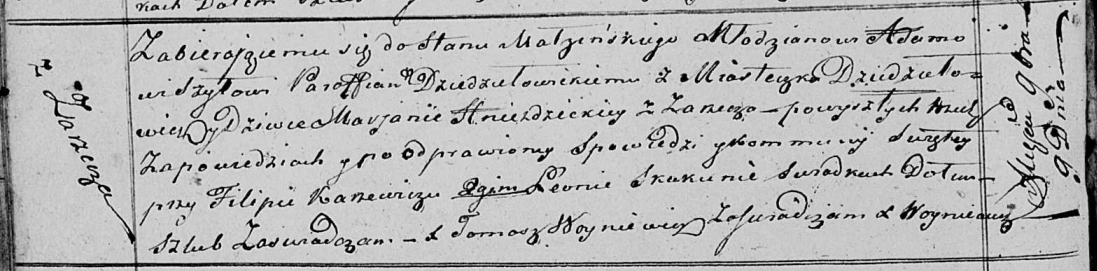 kach Dałem
z Zarzecza
Zabierającemu się do Stanu Małżeńskiego Młodzianowi Adamo
wi Szyłowi Paroffian Dziedziłowickiemu z Miasteczka Dziedziło=
wicz y Dziwce Maryanie Hniezdzickiey z Zarzecza – powyszłych trzech
Zapowiedziach y po odprawioney Spowiedzi y kommunij Swiętey
przy Filipie Karzewiczu 2gim Leonie Skakunie Swiadkach Dałem
Szlub Zaswiadczam – X Tomasz Woyniewicz Zaswiadczam X Woyniewicz
9bra
9 Dnia